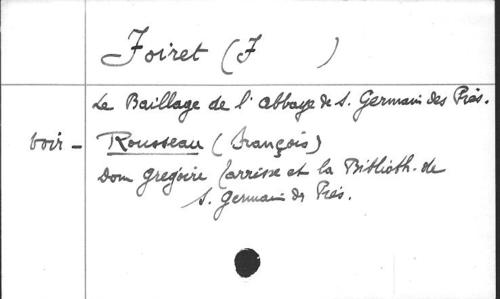 Foiret (F )
Le Baillage de l'abbaye de S. Germain des Près.
voir - Rousseau (François)
Dom Grégoire Tarrisse et la Biblioth. de
S. Germain des Près.